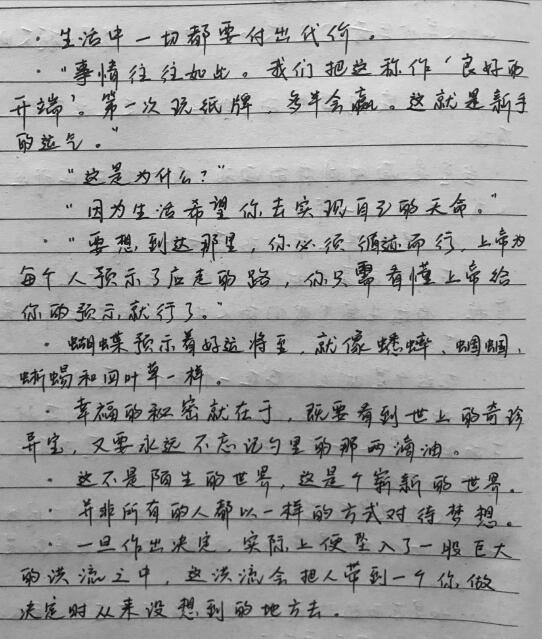 · 生活中一切都要付出代价。
· “事情往往如此。我们把这称作‘良好的
开端’。第一次玩纸牌，多半会赢。这就是新手
的运气。”
“这是为什么？”
“因为生活希望你去实现自己的天命。”
· “要想到达那里，你必须循迹而行，上帝为
每个人预示了应走的路，你只需看懂上帝给
你的预示就行了。”
· 蝴蝶预示着好运将至，就像蟋蟀、蝈蝈、
蜥蜴和四叶草一样。
· 幸福的秘密就在于，既要看到世上的奇珍
异宝，又要永远不忘记勺里的那两滴油。
· 这不是陌生的世界，这是个崭新的世界。
· 并非所有的人都以一样的方式对待梦想。
· 一旦作出决定，实际上便坠入了一股巨大
的洪流之中，这洪流会把人带到一个你做
决定时从来没想到的地方去。